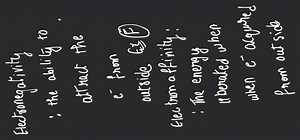 Electronegativity
: the ability to
attract the
e⁻ from
outside Ex F
Electron affinity:
: The energy
liberated when
when e⁻ acquired
from outside